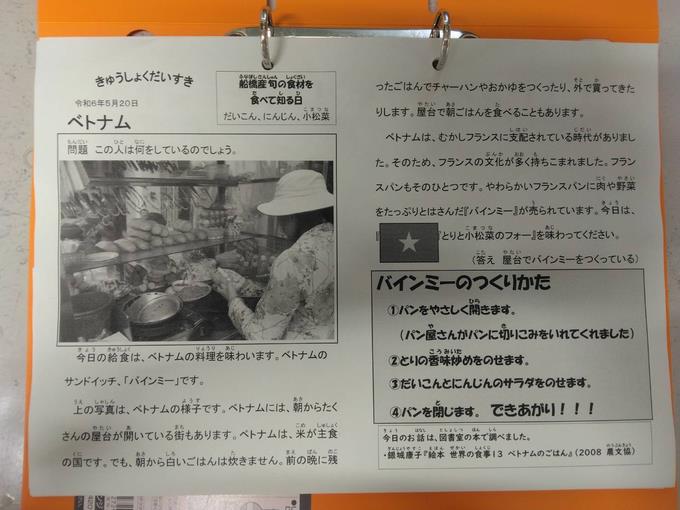 きゅうしょくだいすき
令和6年5月20日
船橋産旬の食材を
食べて知る日
だいこん、にんじん、小松菜
ベトナム
問題 この人は何をしているのでしょう。
今日の給食は、ベトナムの料理を味わいます。ベトナムの
サンドイッチ、「バインミー」です。
上の写真は、ベトナムの様子です。ベトナムには、朝からたく
さんの屋台が開いている街もあります。ベトナムは、米が主食
の国です。でも、朝から白いごはんは炊きません。前の晩に残
ったごはんでチャーハンやおかゆをつくったり、外で買ってきた
りします。屋台で朝ごはんを食べることもあります。
ベトナムは、むかしフランスに支配されている時代がありまし
た。そのため、フランスの文化が多く持ちこまれました。フラン
スパンもそのひとつです。やわらかいフランスパンに肉や野菜
をたっぷりとはさんだ『バインミー』が売られています。今日は、
『とりと小松菜のフォー』を味わってください。
(答え 屋台でバインミーをつくっている)
バインミーのつくりかた
①パンをやさしく開きます。
(パン屋さんがパンに切りこみをいれてくれました)
②とりの香味炒めをのせます。
③だいこんとにんじんのサラダをのせます。
④パンを閉じます。 できあがり!!!
今日のお話は、図書室の本で調べました。
・銀城康子『絵本 世界の食事13 ベトナムのごはん』(2008 農文協)